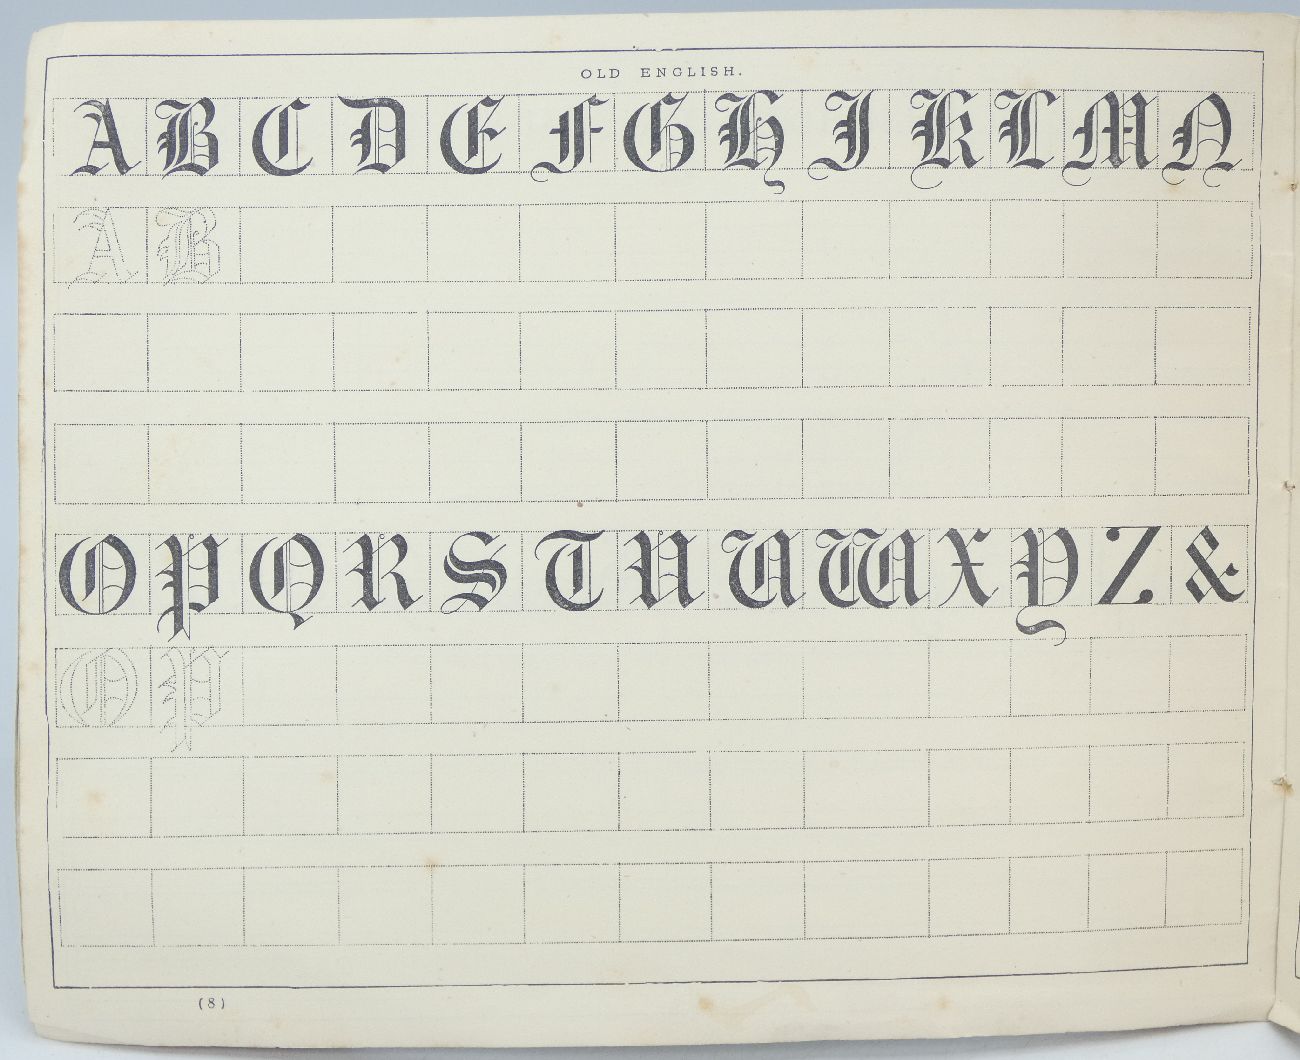 OLD ENGLISH.
A B C D E F G H I K L M N
A B
O P Q R S T U V W X Y Z &
O P
(8)